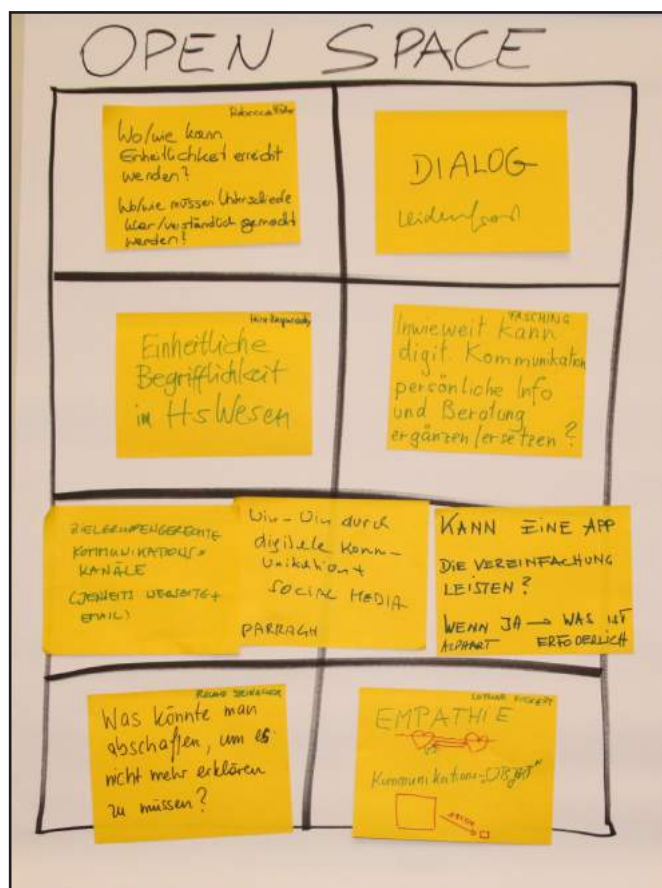 OPEN SPACE
Rebecca
Wo/wie kann
Einheitlichkeit erreicht
werden?
Wo/wie müssen Unterschiede
klar/verständlich gemacht
werden?
DIALOG
Einheitliche
Begrifflichkeit
in HsWesen
FASCHING
Inwieweit kann
digit. Kommunikation
persönliche Info
und Beratung
ergänzen/ersetzen?
ZIELGRUPPENGERECHTE
KOMMUNIKATIONS=
KANÄLE
(JENSEITS WEBSEITE+
EMAIL)
Win-Win durch
digitale Komm-
unikation+
SOCIAL MEDIA
PARRAGH
KANN EINE APP
DIE VEREINFACHUNG
LEISTEN?
WENN JA → WAS IST
ALPHART ERFODERLICH
Was könnte man
abschaffen, um es
nicht mehr erklären
zu müssen?
LOTHAR
EMPATHIE
Kommunikations-